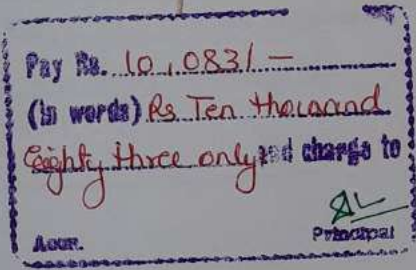 Pay Rs. 10,083/-
(in words) Rs Ten thousand
Eighty three only and charge to
Principal